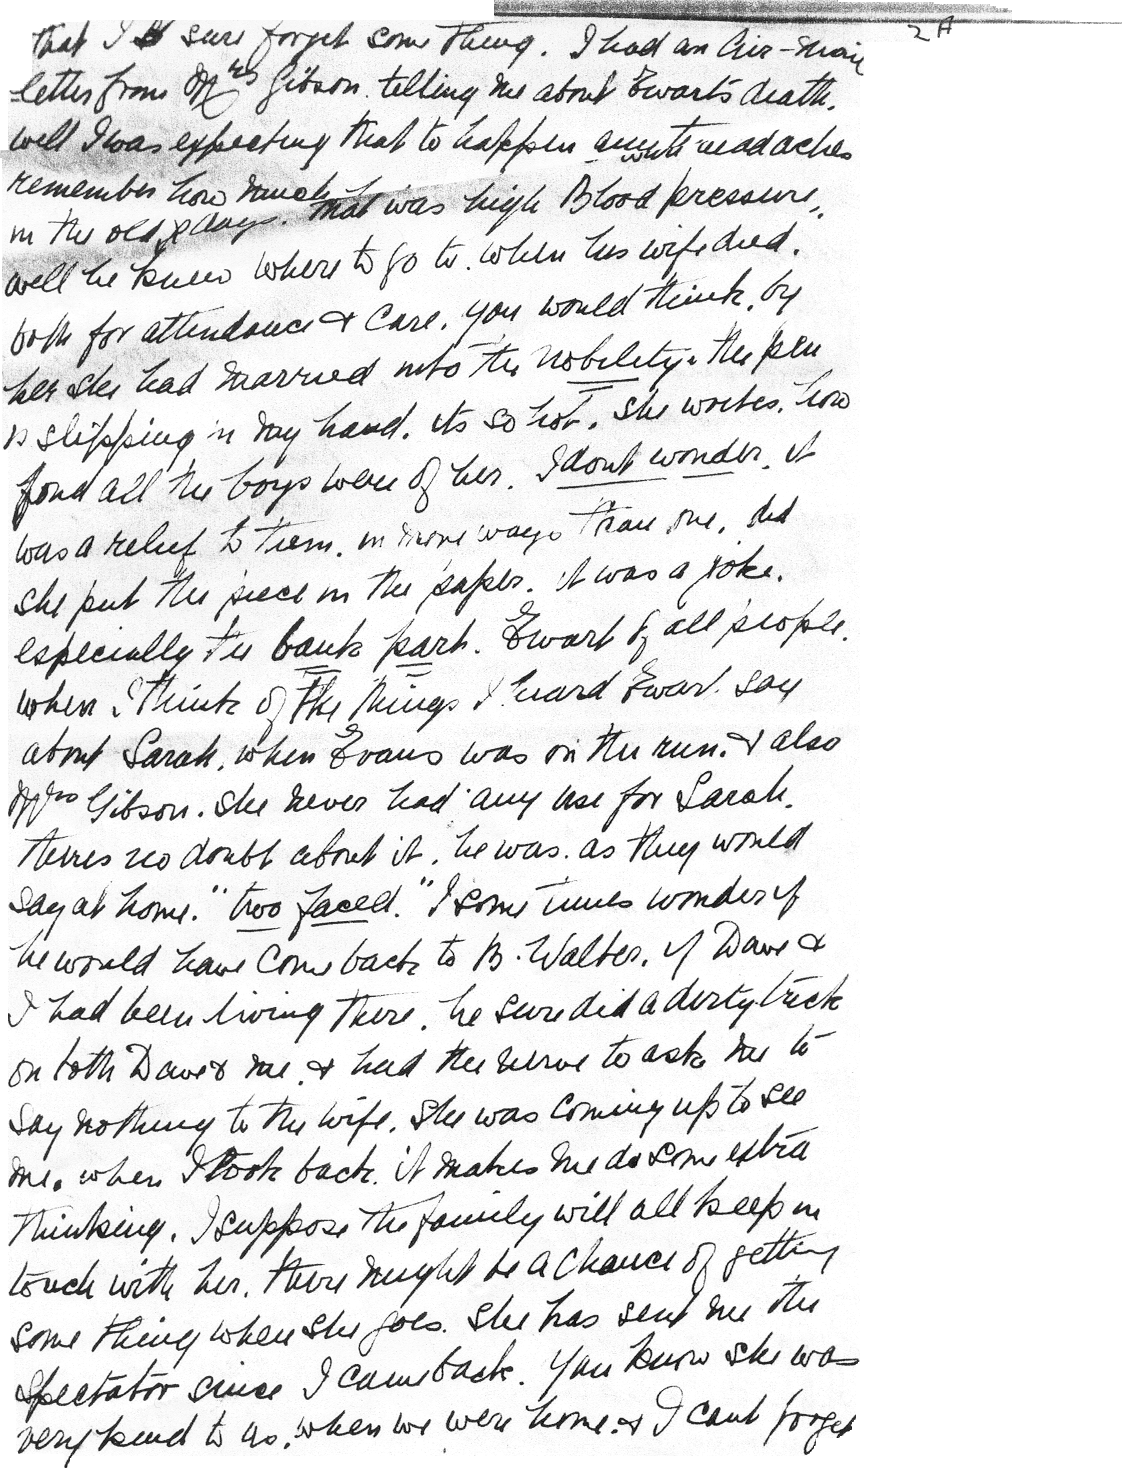 2A
that I sure forget some thing. I had an Air-Mail
letter from Mrs Gibson. telling me about Ewart's death.
well I was expecting that to happen headaches
remember how much he
in the old days. that was high Blood pressure,
well he knew where to go to. when his wife died.
both for attendance & care. you would think, by
her she had married into the nobility. the pen
is slipping in my hand. its so hot. she writes. how
fond all the boys were of her. I dont wonder. it
was a relief to them. in more ways than one. did
she put the piece in the paper. it was a joke.
especially the bank part. Ewart of all people.
when I think of the things I heard Ewart say
about Sarah. when Evans was on the run. & also
Mrs Gibson. she never had any use for Sarah.
theres no doubt about it. he was. as they would
say at home. "two faced." I some times wonder if
he would have come back to B. Walter. if Dave &
I had been living there. he sure did a dirty trick
on both Dave & me. & had the nerve to ask me to
say nothing to the wife. she was coming up to see
me. when I look back. it makes me do some extra
thinking. I suppose the family will all keep in
touch with her. there might be a chance of getting
some thing when she goes. she has sent me the
Spectator since I came back. You know she was
very kind to us. when we were home. & I cant forget